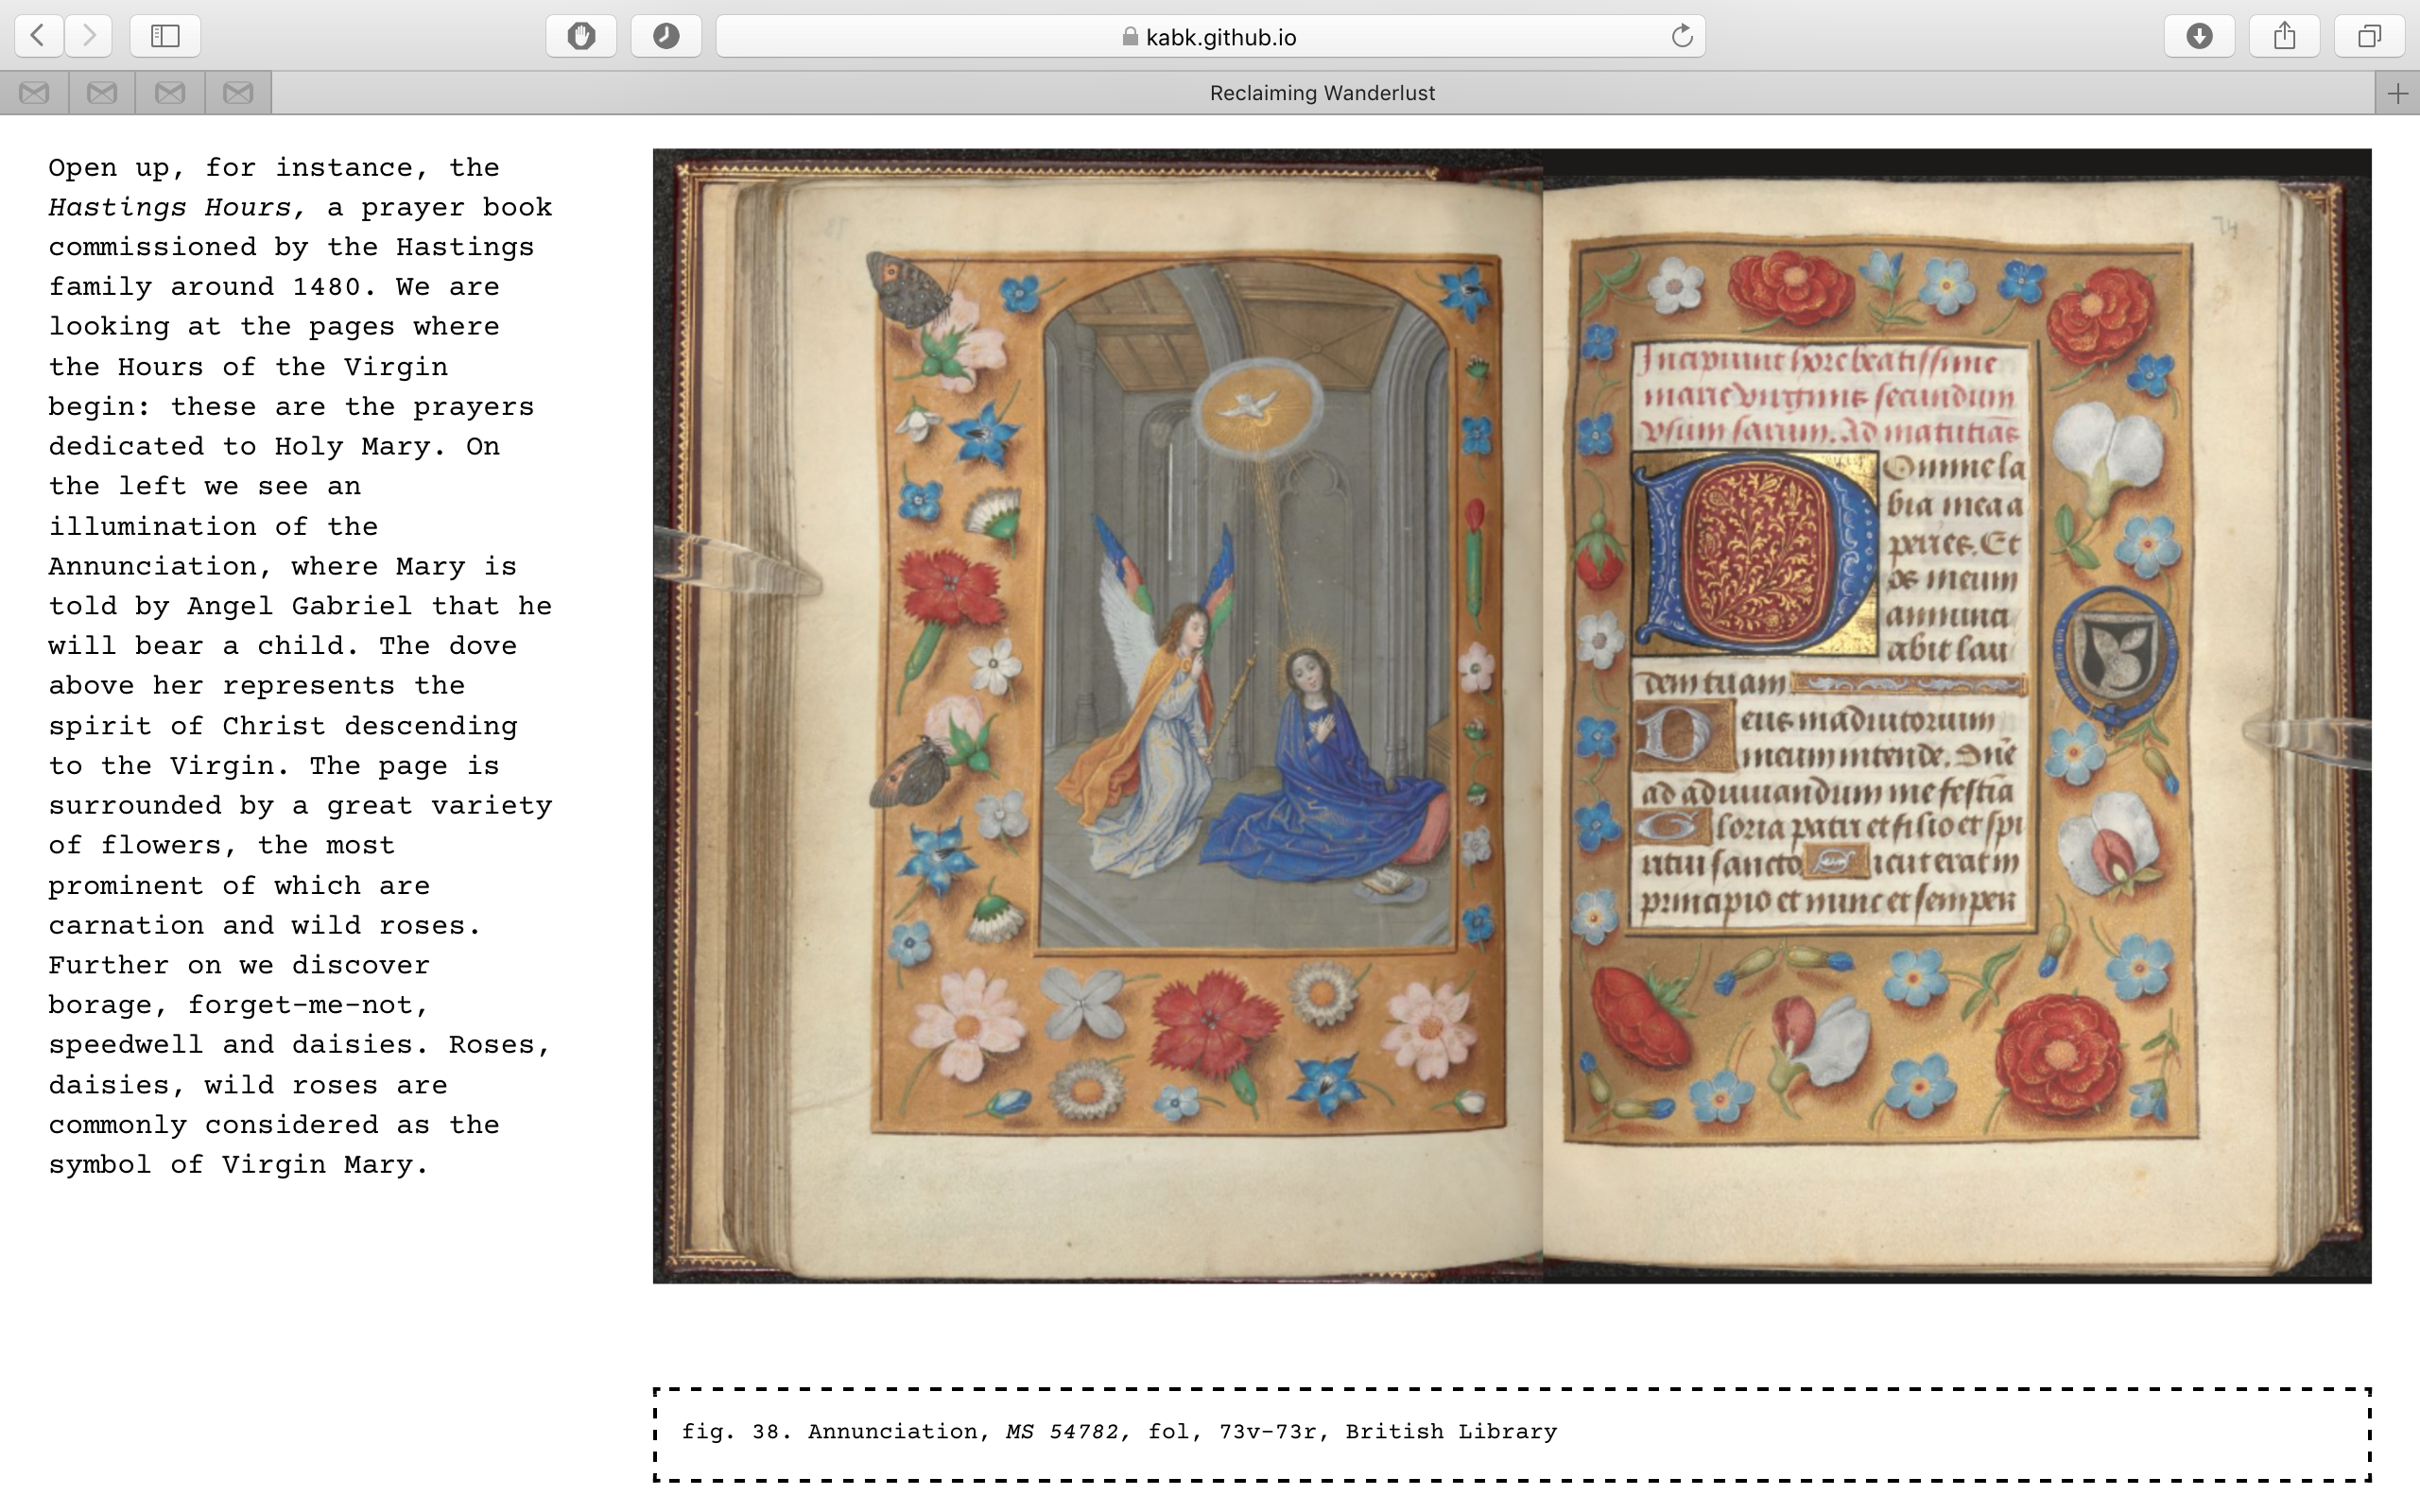 kabk.github.io
Reclaiming Wanderlust
Open up, for instance, the
Hastings Hours, a prayer book
commissioned by the Hastings
family around 1480. We are
looking at the pages where
the Hours of the Virgin
begin: these are the prayers
dedicated to Holy Mary. On
the left we see an
illumination of the
Annunciation, where Mary is
told by Angel Gabriel that he
will bear a child. The dove
above her represents the
spirit of Christ descending
to the Virgin. The page is
surrounded by a great variety
of flowers, the most
prominent of which are
carnation and wild roses.
Further on we discover
borage, forget-me-not,
speedwell and daisies. Roses,
daisies, wild roses are
commonly considered as the
symbol of Virgin Mary.
74
Incipiunt hore beatissime
marie virginis secundum
usum sarum. Ad matutinas
Domine la
bia mea a
peries. Et
os meum
annunci
abit lau
dem tuam
Deus in adiutorium
meum intende. Dne
ad adiuuandum me festina
Gloria patri et filio et spi
ritui sancto Sicut erat in
principio et nunc et semper
fig. 38. Annunciation, MS 54782, fol, 73v-73r, British Library